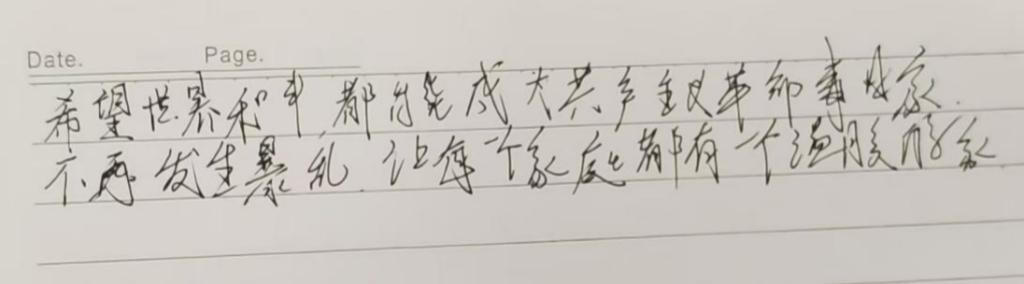 Date. Page.
希望世界和平,都能成大共产主义革命事业家.
不再发生暴乱.让每一个家庭都有一个温